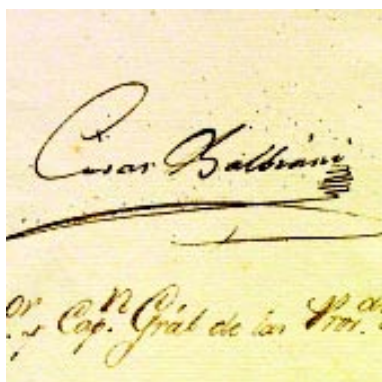 Cesar Balbiani
or. y Capn. Grãl de las Prov.